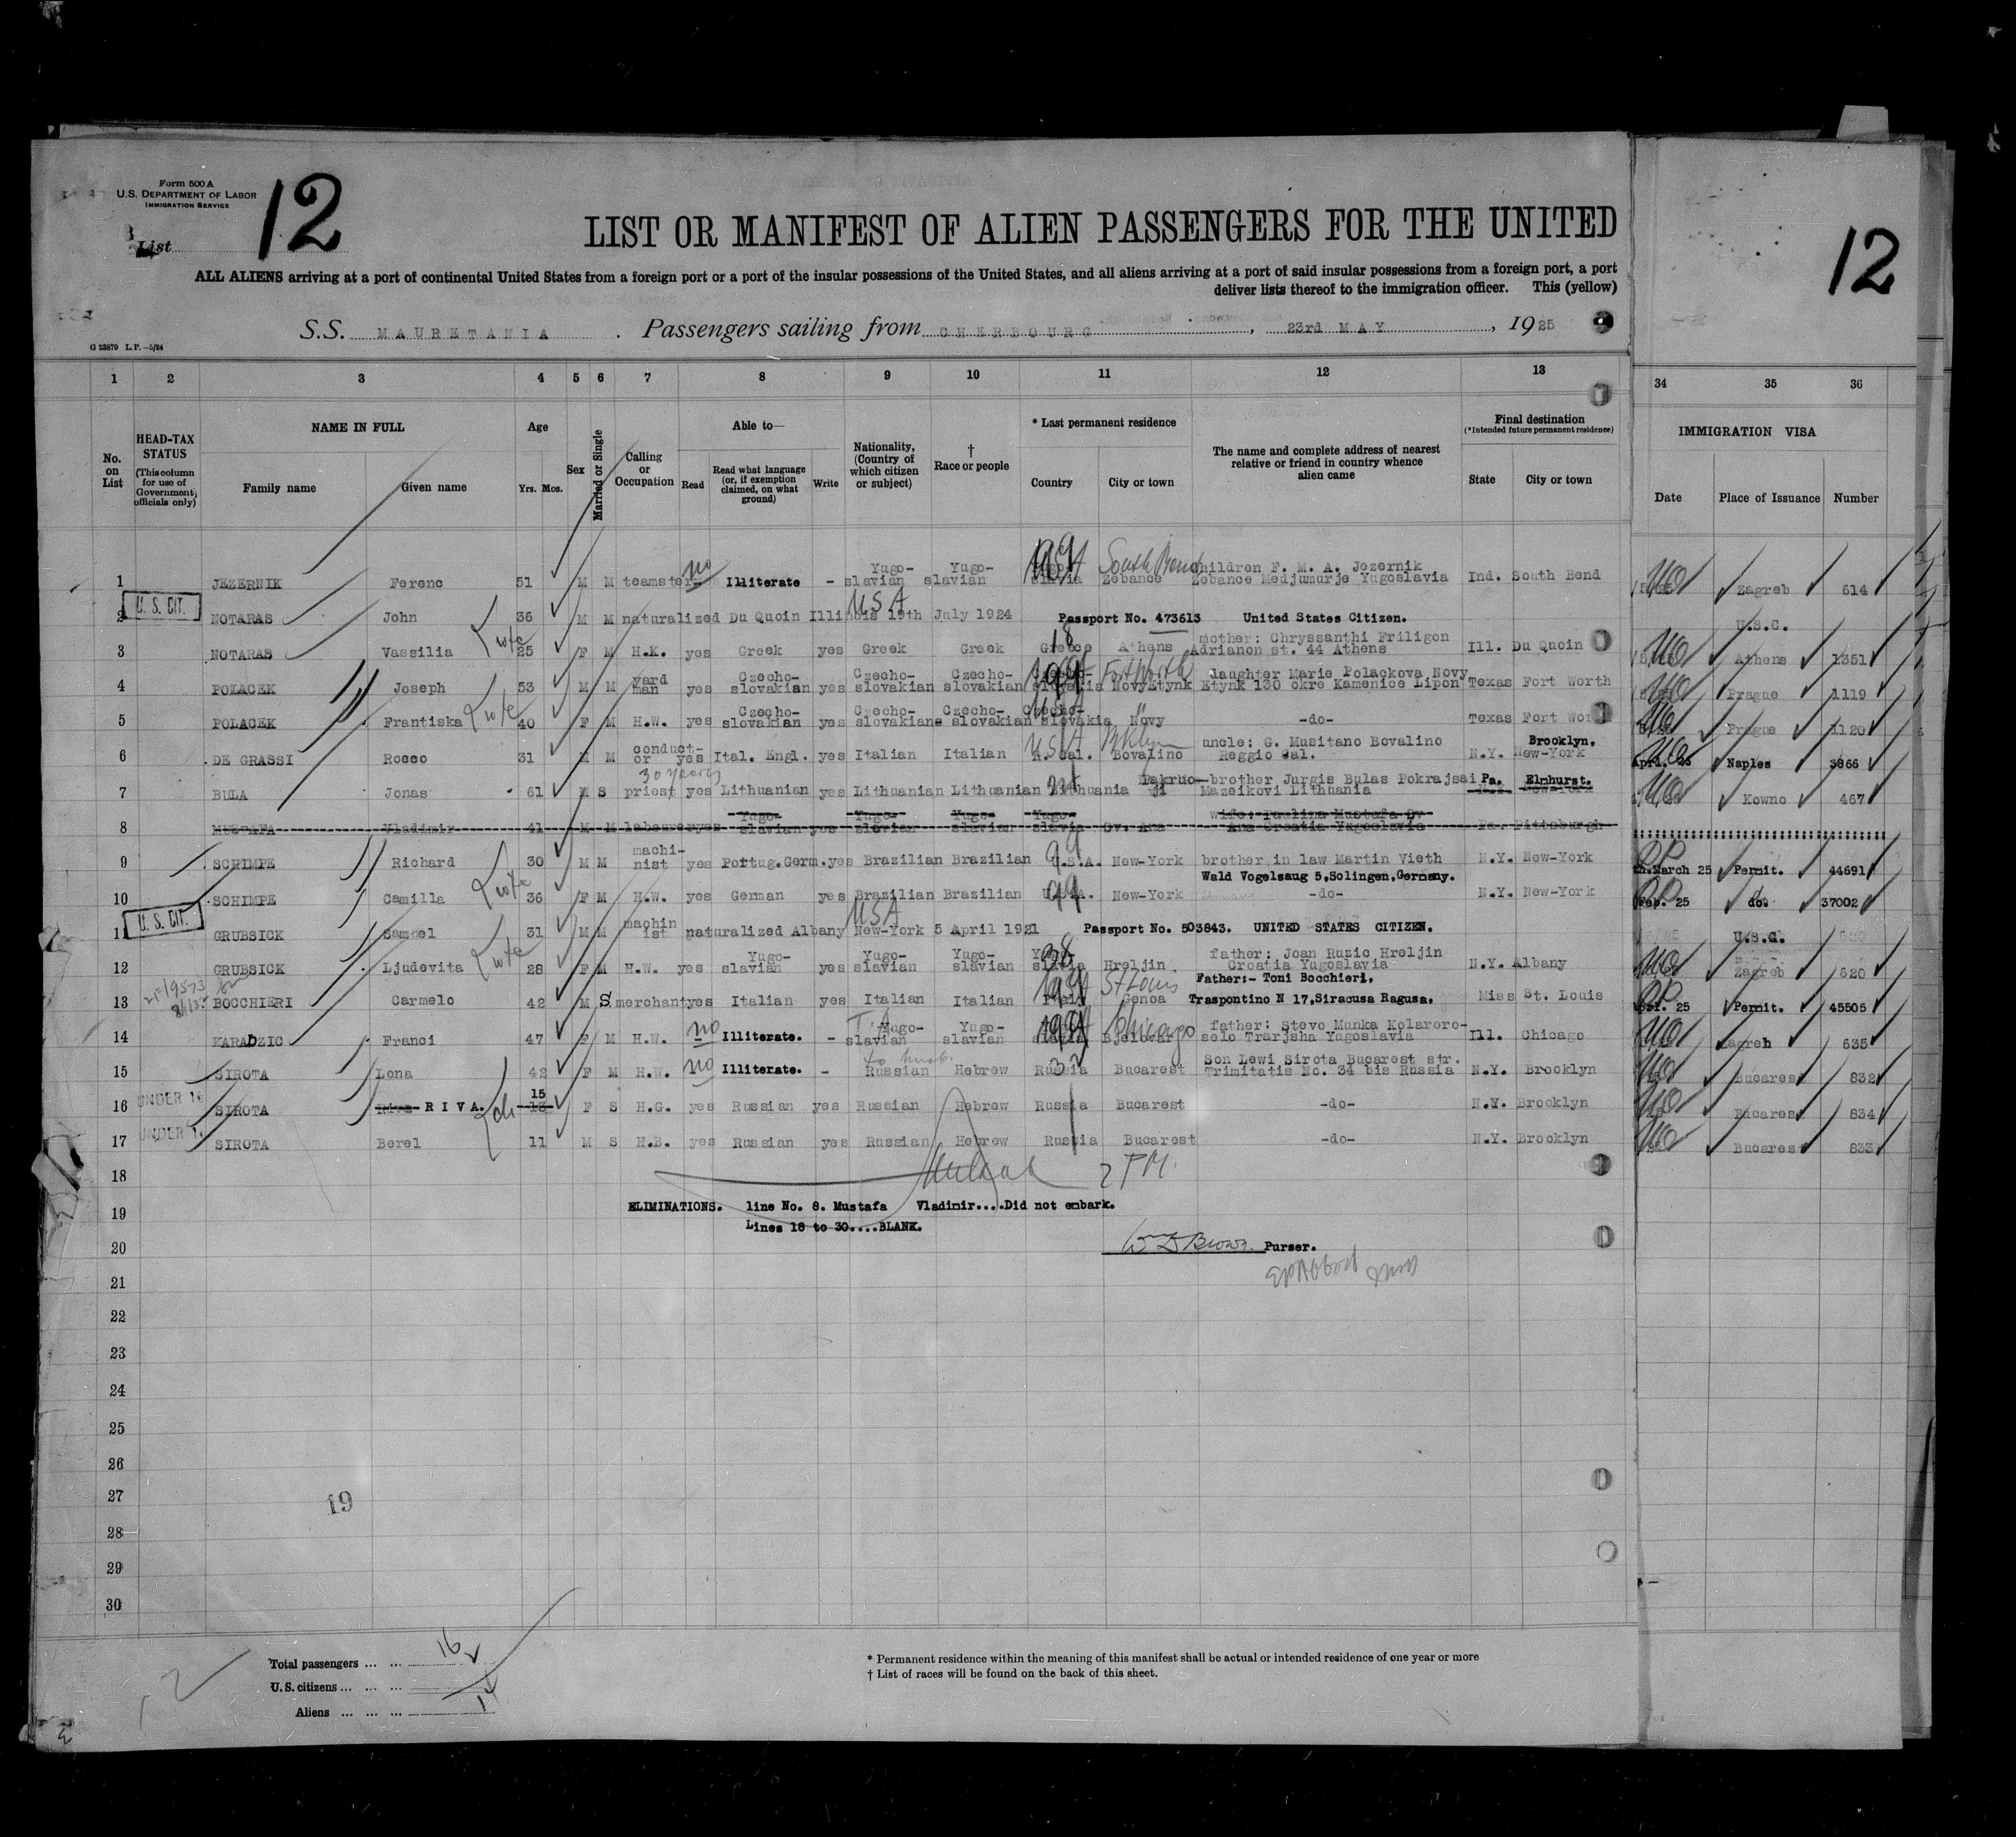 Form 500 A
U.S. DEPARTMENT OF LABOR
IMMIGRATION SERVICE
List 12
12
LIST OR MANIFEST OF ALIEN PASSENGERS FOR THE UNITED
ALL ALIENS arriving at a port of continental United States from a foreign port or a port of the insular possessions of the United States, and all aliens arriving at a port of said insular possessions from a foreign port, a port
deliver lists thereof to the immigration officer. This (yellow)
S.S. MAURETANIA . Passengers sailing from CHERBOURG , 23rd MAY , 1925
G 23879 L.P.—5/24
1 2 3 4 5 6 7 8 9 10 11 12 13 34 35 36
No. on List
HEAD-TAX STATUS (This column for use of Government officials only)
NAME IN FULL
Family name Given name
Age
Yrs. Mos.
Sex
Married or Single
Calling or Occupation
Able to—
Read Read what language (or, if exemption claimed, on what ground) Write
Nationality, (Country of which citizen or subject)
† Race or people
* Last permanent residence
Country City or town
The name and complete address of nearest relative or friend in country whence alien came
Final destination
(*Intended future permanent residence)
State City or town
IMMIGRATION VISA
Date Place of Issuance Number
1 JEZERNIK Ferenc 51 M M teamster no Illiterate - Yugo-slavian Yugo-slavian slavia Zebance South Bend children F. M. A. Jezernik Zebance Medjumurje Yugoslavia Ind. South Bend Zagreb 614
U. S. CIT.
2 NOTARAS John 36 M M naturalized Du Quoin Illinois 19th July 1924 USA Passport No. 473613 United States Citizen. U.S.C.
3 NOTARAS Vassilia wife 25 F M H.K. yes Greek yes Greek Greek Greece Athens mother: Chryssanthi Friligon Adrianon st. 44 Athens Ill. Du Quoin Athens 1351
4 POLACEK Joseph 53 M M yard man yes Czecho-slovakian yes Czecho-slovakian Czecho-slovakian slovakia Novy Etynk Fort Worth daughter Marie Polackova Novy Etynk 130 okre Kamenice Lipon Texas Fort Worth Prague 1119
5 POLACEK Frantiska wife 40 F M H.W. yes Czecho-slovakian yes Czecho-slovakiane Czecho-slovakian Czecho-slovakia Novy -do- Texas Fort Prague 1120
6 DE GRASSI Rocco 31 M M conduct-or yes Ital. Engl. yes Italian Italian USA R.Cal. Bovalino Bklyn uncle: G. Musitano Bovalino Reggio Cal. N.Y. Brooklyn, New-York April. 25 Naples 3866
7 BULA Jonas 61 M S 30 years priest yes Lithuanian yes Lithuanian Lithuanian Lithuania Pakruo-ji brother Jurgis Bulas Pokrajsai Mazeikovi Lithuania Pa. Elmhurst. Kowno 467
8 MUSTAFA Vladimir 41 M M labourer yes Yugo-slavian yes Yugo-slavian Yugo-slavian Yugo-slavia Sv. Ana wife: Paulina Mustafa Sv Ana Croatia Yugoslavia Pa. Pittsburgh
9 SCHIMPE Richard 30 M M machi-nist yes Portug.Germ. yes Brazilian Brazilian U.S.A. New-York brother in law Martin Vieth Wald Vogelsaug 5,Solingen,Germany. N.Y. New-York March 25 Permit. 44691
10 SCHIMPE Camilla wife 36 F M H.W. yes German yes Brazilian Brazilian U.S.A. New-York -do- N.Y. New-York Feb. 25 do. 37002
U. S. CIT.
11 GRUBSICK Samuel 31 M M machin ist naturalized Albany New-York 5 April 1921 USA Passport No. 503843. UNITED STATES CITIZEN. U.S.C.
12 GRUBSICK Ljudevita wife 28 F M H.W. yes Yugo-slavian yes Yugo-slavian Yugo-slavian slavia Hreljin father: Joan Ruzic Hreljin Croatia Yugoslavia N.Y. Albany Zagreb 620
13 BOCCHIERI Carmelo 42 M S merchant yes Italian yes Italian Italian Italy Genoa St Louis Father:- Toni Bocchieri. Traspontino N 17,Siracusa Ragusa. Miss St. Louis 25 Permit. 45505
14 KARABZIC Franci 47 F M H.W. no Illiterate. - Yugo-slavian Yugo-slavian slavia Bjelovar Chicago father: Stevo Munka Kolaroro-selo Trarjsha Yugoslavia Ill. Chicago Zagreb 635
15 SIROTA Lena 42 F M H.W. no Illiterate. - to husb. Russian Hebrew Russia Bucarest Son Lewi Sirota Bucarest str. Trimitatis No. 34 bis Russia N.Y. Brooklyn Bucarest 832
UNDER 16
16 SIROTA Riva RIVA. ch 15 13 F S H.G. yes Russian yes Russian Hebrew Russia Bucarest -do- N.Y. Brooklyn Bucarest 834
17 SIROTA Berel 11 M S H.B. yes Russian yes Russian Hebrew Russia Bucarest -do- N.Y. Brooklyn Bucarest 833
18 2 PM.
19 ELIMINATIONS. line No. 8. Mustafa Vladimir....Did not embark.
Lines 18 to 30....BLANK.
20 W D Brown. Purser.
21
22
23
24
25
26
27
19
28
29
30
Total passengers ... ... 16
U. S. citizens ... ... ... 2
Aliens ... ... ... 14
* Permanent residence within the meaning of this manifest shall be actual or intended residence of one year or more
† List of races will be found on the back of this sheet.